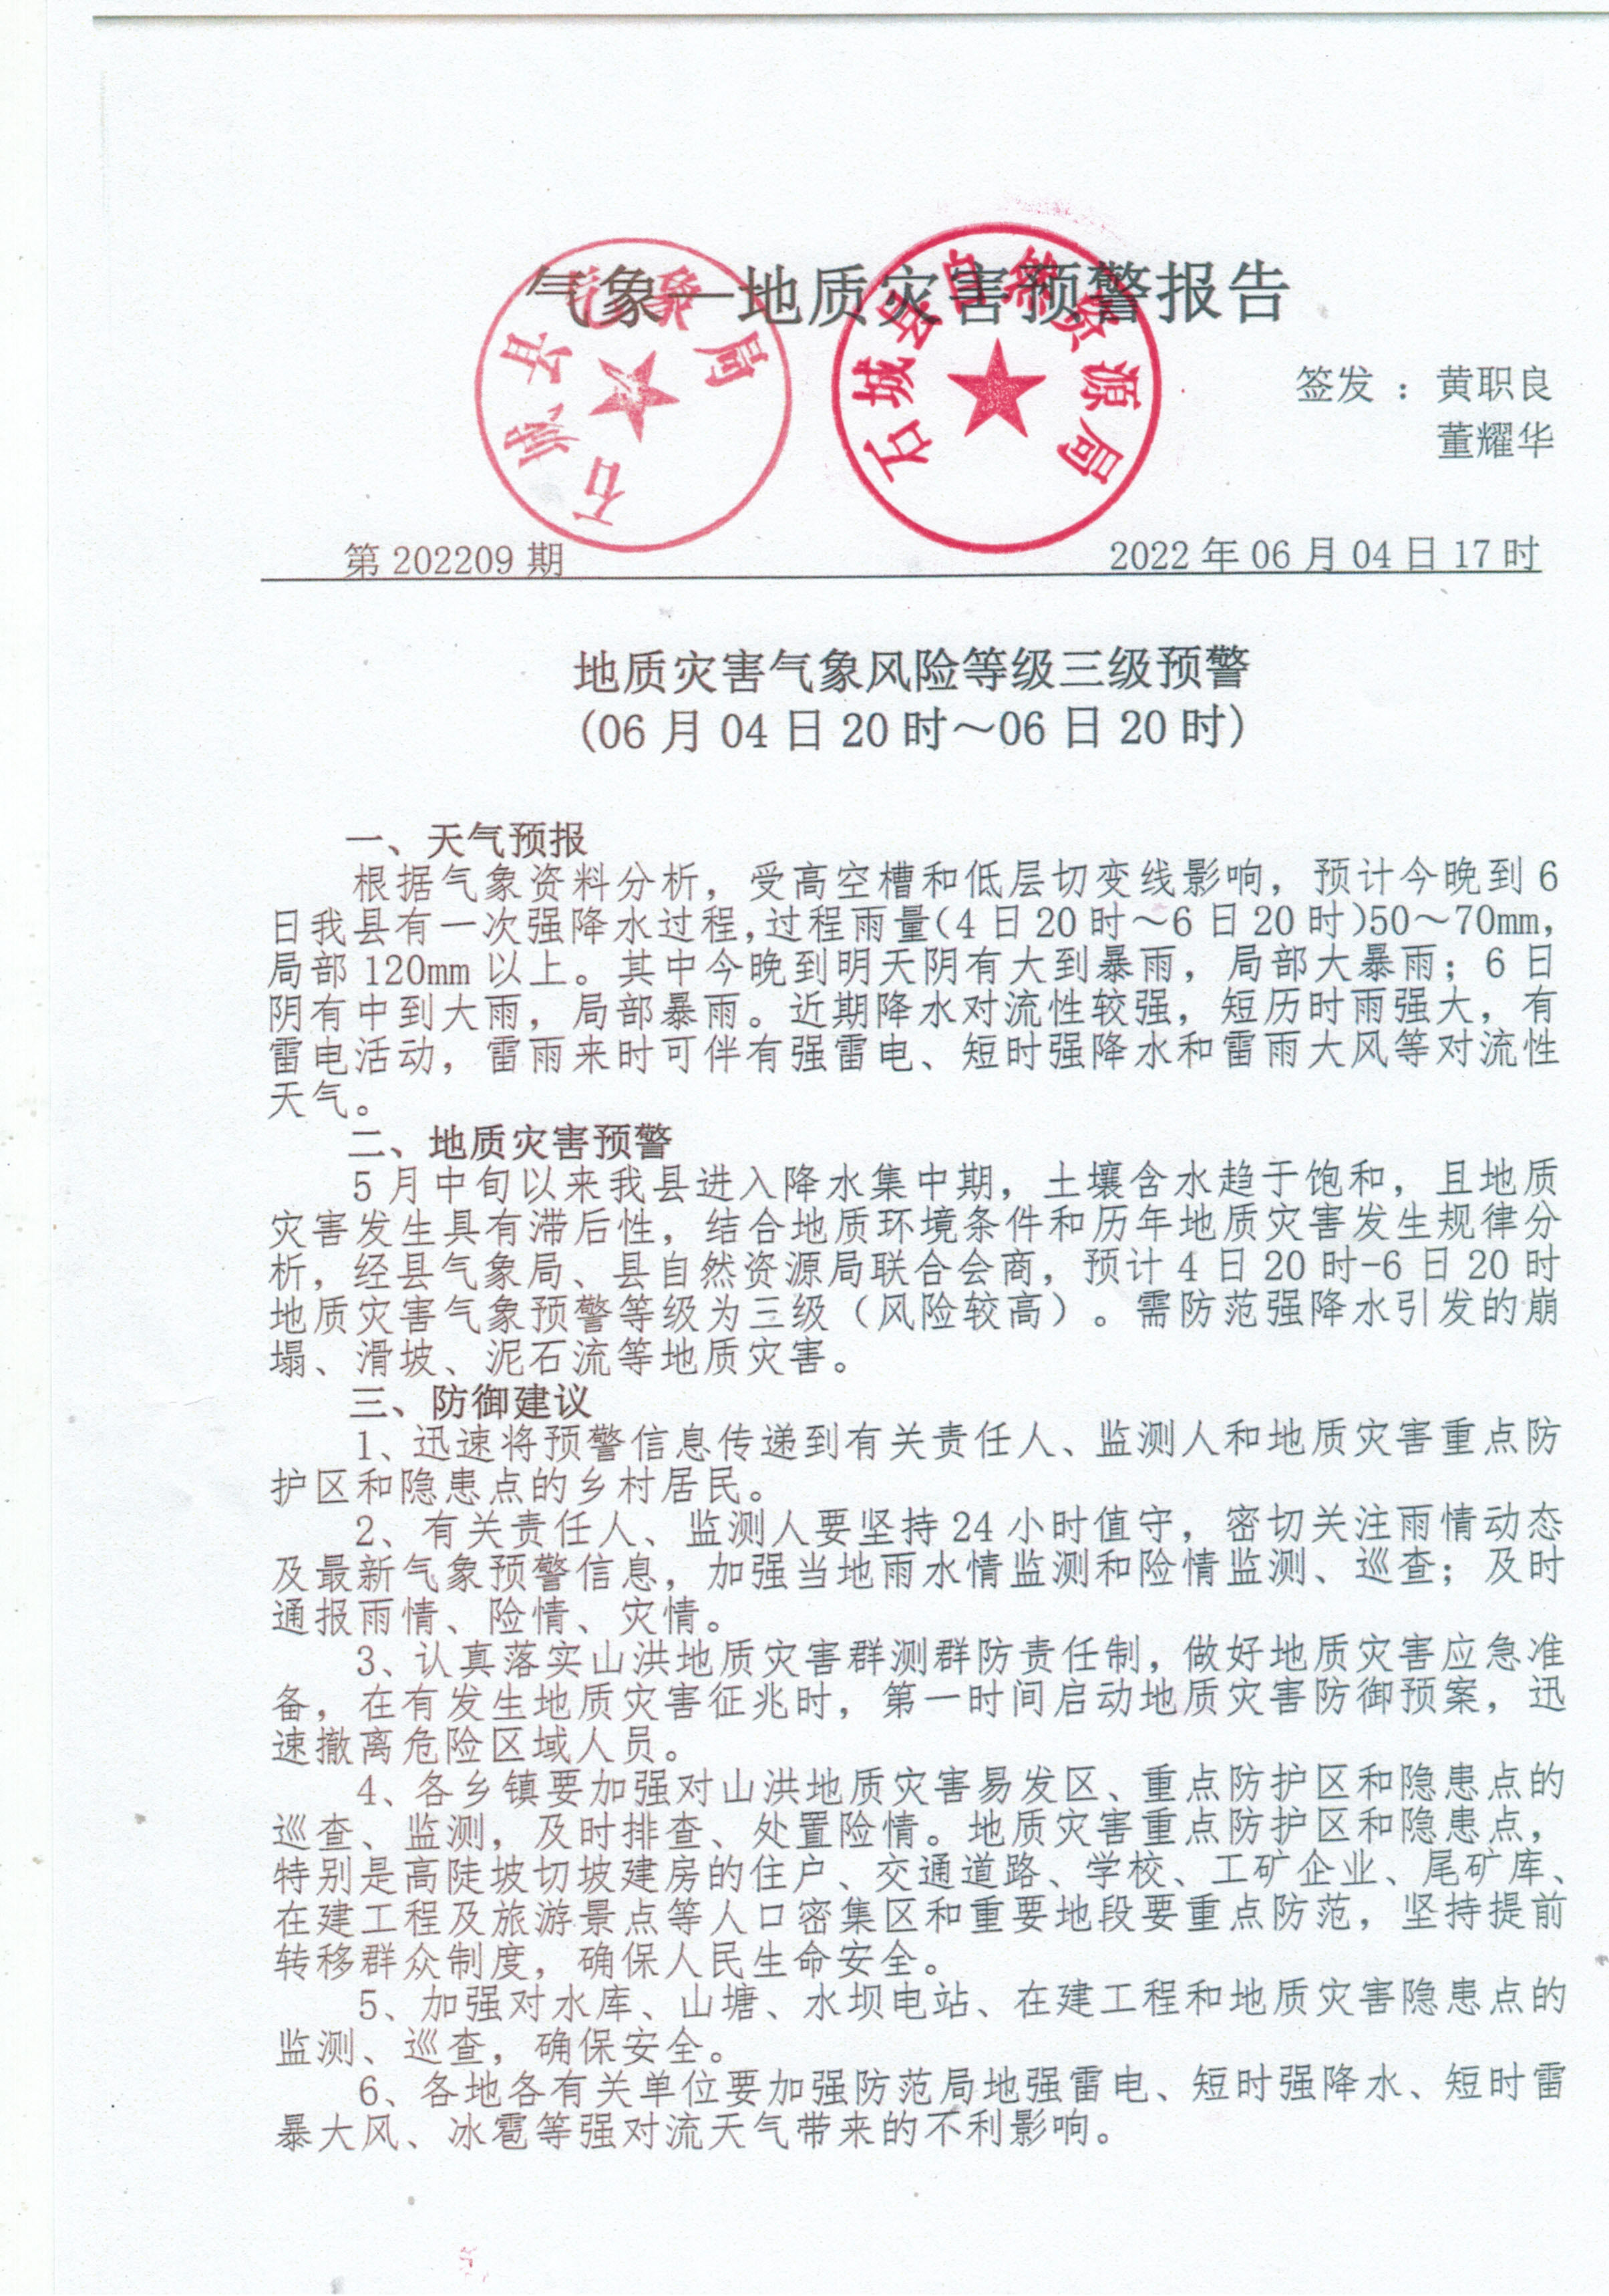 气象—地质灾害预警报告
石城县气象局
石城县自然资源局
签发：黄职良
董耀华
第 202209 期
2022 年 06 月 04 日 17 时
地质灾害气象风险等级三级预警
(06 月 04 日 20 时～06 日 20 时)
一、天气预报
根据气象资料分析，受高空槽和低层切变线影响，预计今晚到 6
日我县有一次强降水过程,过程雨量(4 日 20 时～6 日 20 时)50～70mm,
局部 120mm 以上。其中今晚到明天阴有大到暴雨，局部大暴雨；6 日
阴有中到大雨，局部暴雨。近期降水对流性较强，短历时雨强大，有
雷电活动，雷雨来时可伴有强雷电、短时强降水和雷雨大风等对流性
天气。
二、地质灾害预警
5 月中旬以来我县进入降水集中期，土壤含水趋于饱和，且地质
灾害发生具有滞后性，结合地质环境条件和历年地质灾害发生规律分
析，经县气象局、县自然资源局联合会商，预计 4 日 20 时-6 日 20 时
地质灾害气象预警等级为三级（风险较高）。需防范强降水引发的崩
塌、滑坡、泥石流等地质灾害。
三、防御建议
1、迅速将预警信息传递到有关责任人、监测人和地质灾害重点防
护区和隐患点的乡村居民。
2、有关责任人、监测人要坚持 24 小时值守，密切关注雨情动态
及最新气象预警信息，加强当地雨水情监测和险情监测、巡查；及时
通报雨情、险情、灾情。
3、认真落实山洪地质灾害群测群防责任制，做好地质灾害应急准
备，在有发生地质灾害征兆时，第一时间启动地质灾害防御预案，迅
速撤离危险区域人员。
4、各乡镇要加强对山洪地质灾害易发区、重点防护区和隐患点的
巡查、监测，及时排查、处置险情。地质灾害重点防护区和隐患点，
特别是高陡坡切坡建房的住户、交通道路、学校、工矿企业、尾矿库、
在建工程及旅游景点等人口密集区和重要地段要重点防范，坚持提前
转移群众制度，确保人民生命安全。
5、加强对水库、山塘、水坝电站、在建工程和地质灾害隐患点的
监测、巡查，确保安全。
6、各地各有关单位要加强防范局地强雷电、短时强降水、短时雷
暴大风、冰雹等强对流天气带来的不利影响。